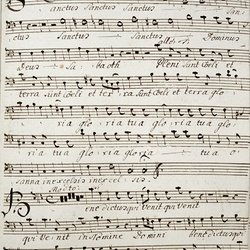 Sanctus Sanctus Sanctus
ctus Sanctus Dominus
Deus Sa baoth Pleni sunt Coeli et
terra sunt Coeli et terra sunt Coeli et terra glo
ria gloria tua gloria tua glo
ria tua gloria gloria tua o
sanna in excelsis in excelsis
Bene dictus qui Venit qui Venit
qui Venit in Nomine Domini Benedictus qui